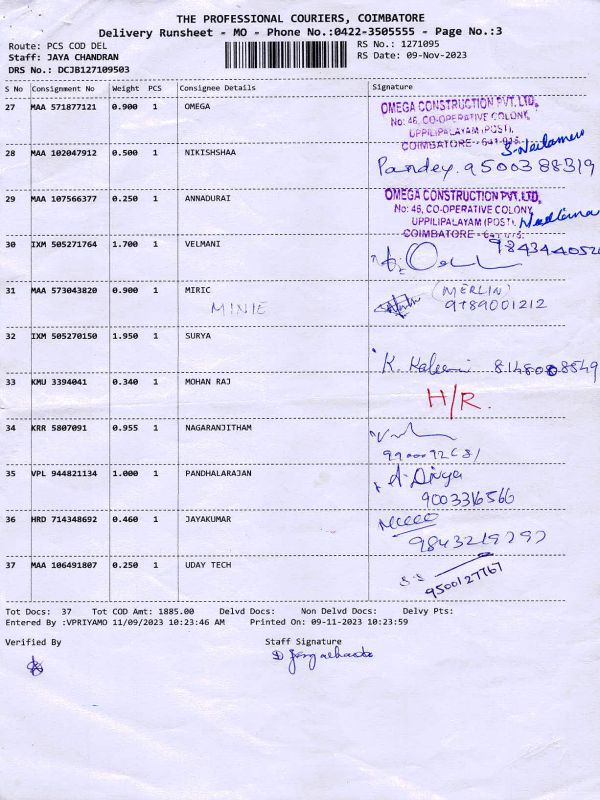 THE PROFESSIONAL COURIERS, COIMBATORE
Delivery Runsheet - MO - Phone No.:0422-3505555 - Page No.:3
Route: PCS COD DEL
Staff: JAYA CHANDRAN
DRS No.: DCJB127109503
RS No.: 1271095
RS Date: 09-Nov-2023
S No Consignment No Weight PCS Consignee Details Signature
27 MAA 571877121 0.900 1 OMEGA
OMEGA CONSTRUCTION PVT.LTD,
No: 46, CO-OPERATIVE COLONY,
UPPILIPALAYAM (POST),
COIMBATORE - 641 015.
28 MAA 102047912 0.500 1 NIKISHSHAA
Pandey. 9500388319
29 MAA 107566377 0.250 1 ANNADURAI
OMEGA CONSTRUCTION PVT.LTD,
No: 46, CO-OPERATIVE COLONY,
UPPILIPALAYAM (POST),
COIMBATORE - 641 015.
30 IXM 505271764 1.700 1 VELMANI
31 MAA 573043820 0.900 1 MIRIC
MINIE
(MERLIN)
9789001212
32 IXM 505270150 1.950 1 SURYA
K. Kaleeni
33 KMU 3394041 0.340 1 MOHAN RAJ
H/R.
34 KRR 5807091 0.955 1 NAGARANJITHAM
35 VPL 944821134 1.000 1 PANDHALARAJAN
A. Divya
9003316566
36 HRD 714348692 0.460 1 JAYAKUMAR
37 MAA 106491807 0.250 1 UDAY TECH
9500127767
Tot Docs: 37 Tot COD Amt: 1885.00 Delvd Docs: Non Delvd Docs: Delvy Pts:
Entered By :VPRIYAMO 11/09/2023 10:23:46 AM Printed On: 09-11-2023 10:23:59
Verified By
Staff Signature